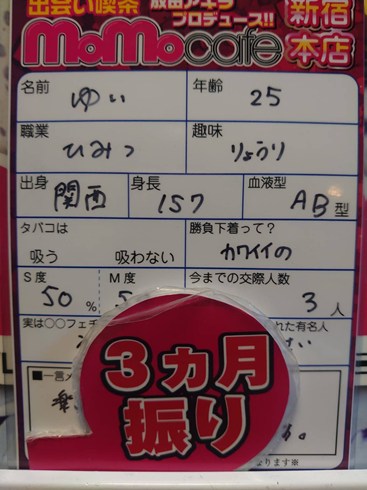 出会い喫茶 成田アキラ プロデュース!! 新宿
MoMocafe 本店
名前 ゆい 年齢 25
職業 ひみつ 趣味 りょうり
出身 関西 身長 157 血液型 AB型
タバコは 勝負下着って?
吸う 吸わない カワイイの
S度 M度 今までの交際人数
50% 5 3人
実は○○フェチ れた有名人
3ヵ月
振り
■一言メ
ります※